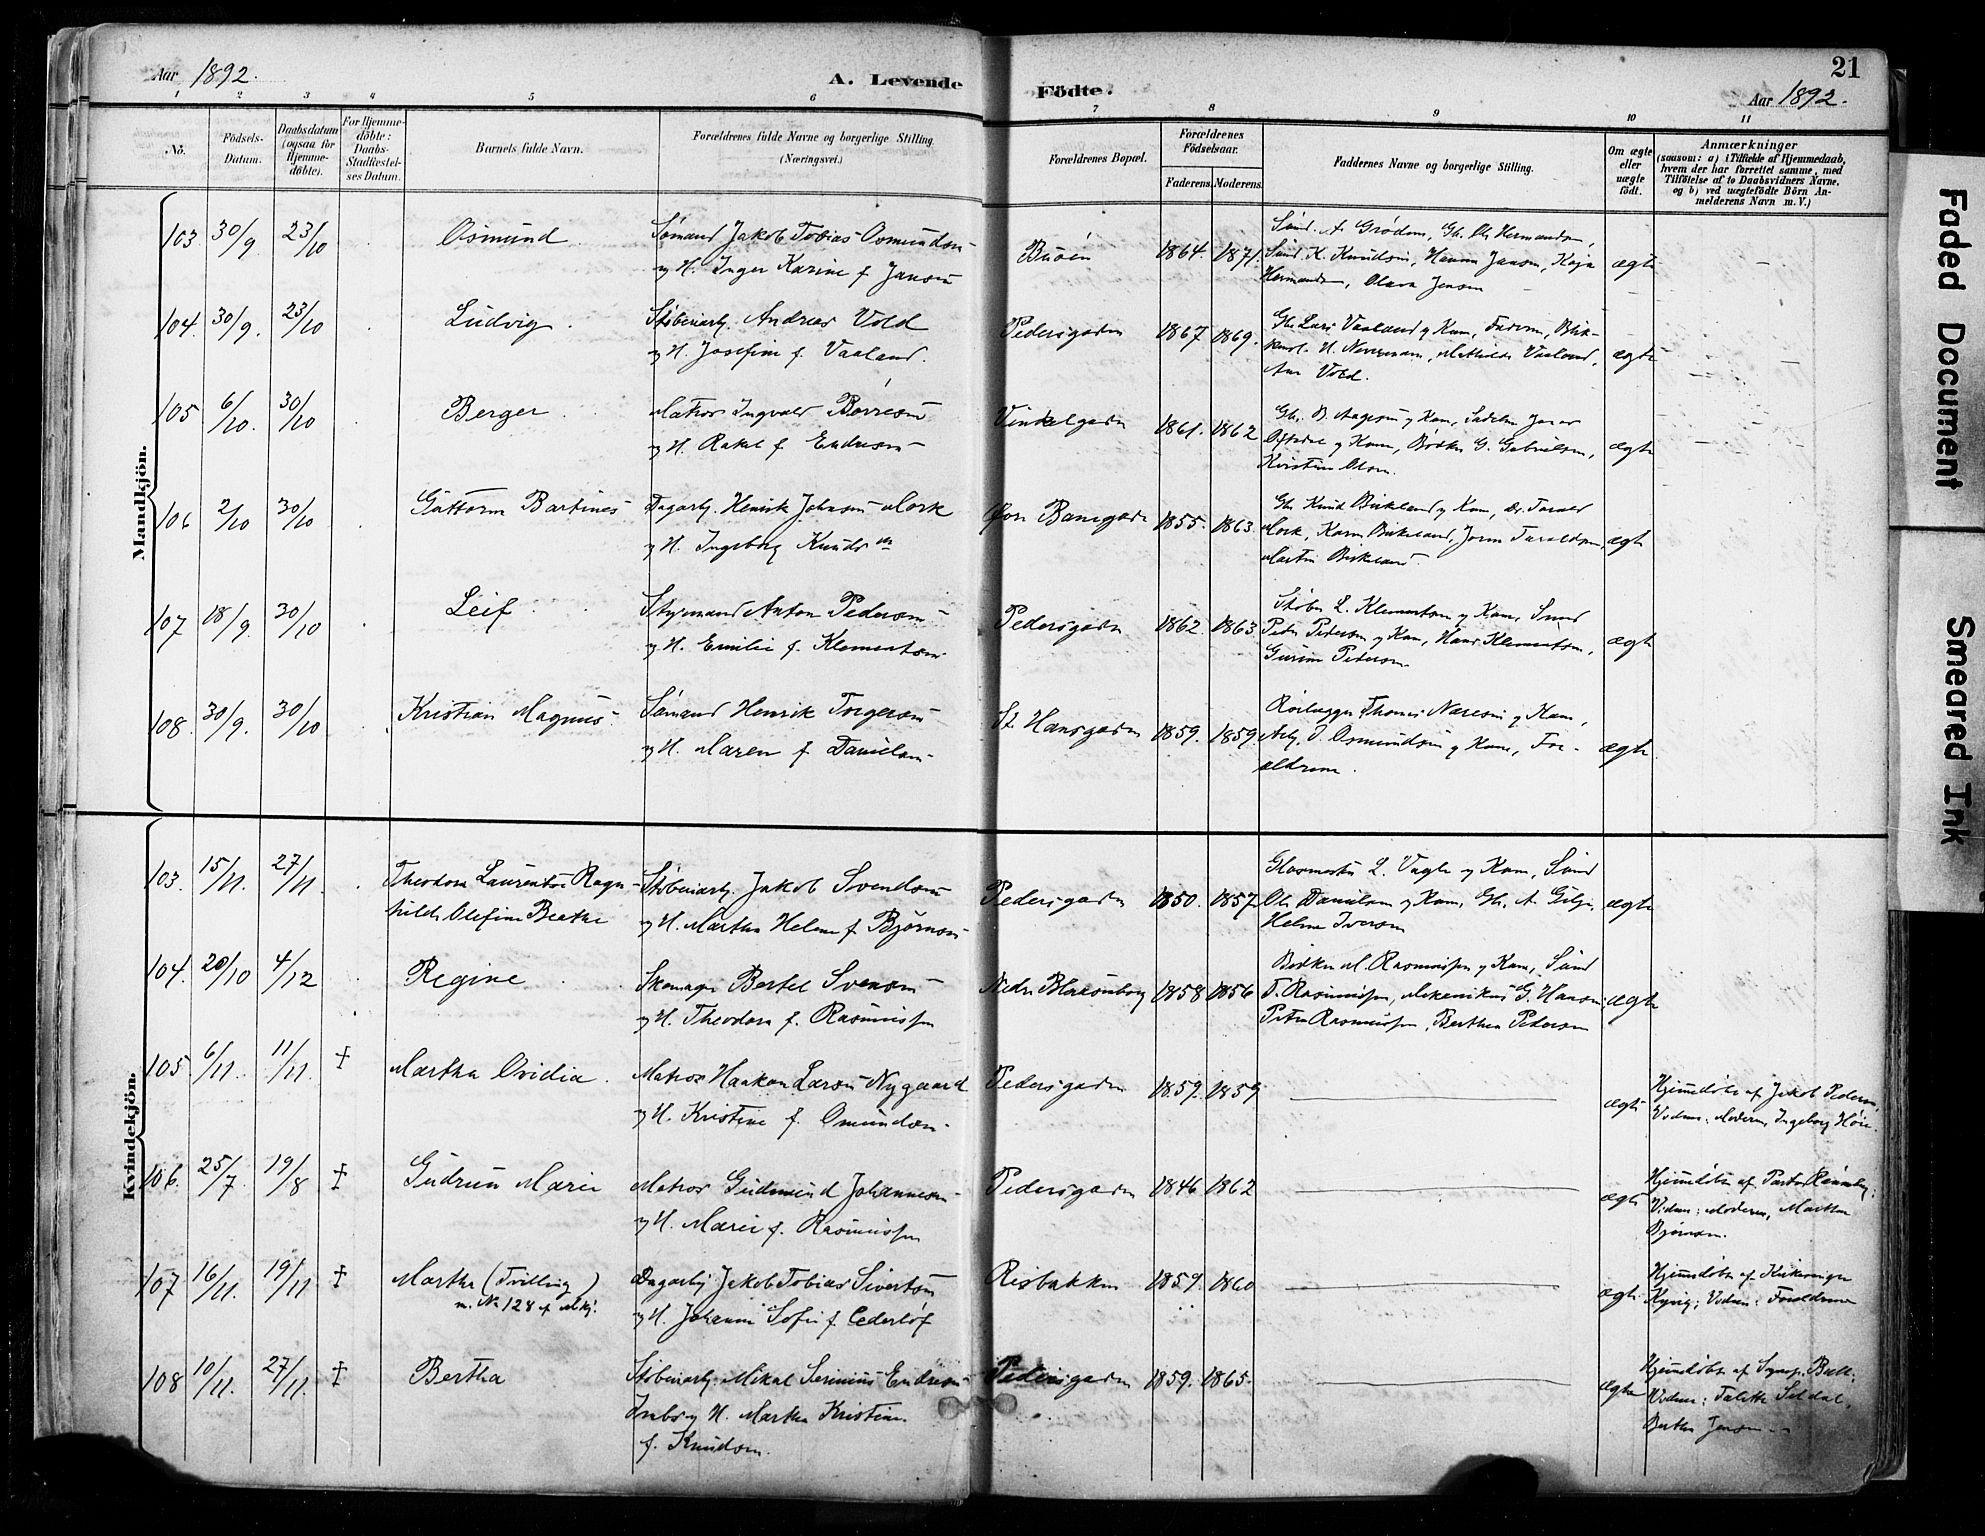 Aar 1892.
A. Levende
Födte.
21
Aar 1892.
1 2 3 4 5 6 7 8 9 10 11
No.
Födsels-
Datum.
Daabsdatum
(ogsaa for
Hjemme-
döbte).
For Hjemme-
döbte:
Daabs-
Stadfæstel-
ses Datum.
Barnets fulde Navn.
Forældrenes fulde Navne og borgerlige Stilling.
(Næringsvei.)
Forældrenes Bopæl.
Forældrenes
Födselsaar.
Faderens. Moderens.
Faddernes Navne og borgerlige Stilling.
Om ægte
eller
uægte
födt.
Anmærkninger
(saasom: a) i Tilfælde af Hjemmedaab,
hvem der har forrettet samme, med
Tilföielse af to Daabsvidners Navne,
og b) ved uægtefödte Börn An-
melderens Navn m. V.)
Mandkjön.
103. 30/9 23/10 Osmund Sømand Jakob Tobias Osmundsen
og H. Inger Karine f. Jansen
Buøen 1864. 1871.
Sømd. A. Grødem, Gb. Ole Hermandsen,
Sømd. K. Knudsen, Hanna Jansen, Kaja
Hermandsen, Olava Jensen
ægte
104. 30/9. 23/10 Ludvig Støberiarb. Andreas Vold
og H. Josefine f. Vaaland.
Pedersgaden 1867 1869.
Gb. Lars Vaaland og Kone, Faderen,
Mathilde Vaaland,
Ane Vold.
ægte
105 6/10. 30/10 Berger Matros Ingvald Børresen
og H. Rakel f. Endresen
Vinkelgaden 1861. 1862
Gb. B. Aagesen og Kone,
og Kone, Bødker G. Gabrielsen,
Kristine Olsen.
ægte
106 2/10 30/10 Guttorm Bartines Dagarb. Henrik Johnsen Mork
og H. Ingeborg Knudsen
Øvre Banegade 1855. 1863.
Gb. Knud Birkeland og Kone,
Mork, Karen Birkeland,
Martin Birkeland
ægte
107 18/9. 30/10 Leif Styrmand Anton Pedersen
og H. Emilie f. Klementsen
Pedersgaden 1862. 1863.
Støber L. Klementsen og Kone, Sømd
Peder Pedersen og Kone, Hans Klementsen,
Gurine Pedersen
ægte
108. 30/9. 30/10 Kristian Magnus Sømand Henrik Torgersen
og H. Maren f. Danielsen
St. Hansgaden 1859. 1859.
Thomas Næresen og Kone,
Arb. O. Osmundsen og Kone, For-
ældrene.
ægte
Kvindekjön.
103. 15/11. 27/11. Theodora Laurentse Ragn-
hilde Olefine Beathe
Støberiarb. Jakob Svendsen
og H. Martha Helene f. Bjørnsen
Pedersgaden 1850. 1857
Glasmester L. Vagle og Kone, Sømd
Ole Danielsen og Kone, Gb. A. Gilje,
Helene Iversen
ægte
104. 20/10 4/12 Regine Skomager Bertel Svensen
og H. Theodora f. Rasmussen
Nedre Blaasenborg 1858 1856
Bødker M. Rasmussen og Kone, Sømd
T. Rasmussen, Mekanikus G. Hansen,
Petra Rasmussen, Berthea Pedersen
ægte
105 6/11. 11/11. † Martha Ovidia. Matros Haakon Larsen Nygaard
og H. Kristine f. Omundsen
Pedersgaden 1859. 1859
ægte
Hjemmedøbt af Jakob Pedersen,
Vidner: Moderen, Ingeborg Høie.
106. 25/7 19/8 † Gudrun Marie Matros Gudmund Johannesen
og H. Marie f. Rasmussen
Pedersgaden 1846 1862
ægte
Hjemmedøbt af Pastor
Vidner: Moderen, Martha
Bjørnsen.
107 16/11. 19/11 † Martha (Tvilling)
m. No 128 af Mkj.
Dagarb. Jakob Tobias Sivertsen
og H. Johanne Sofie f. Cederløf
Risbakken 1859. 1860
ægte
Hjemmedøbt af Kirkesanger
Kyvig; Vidner: Forældrene
108 10/11. 27/11. † Bertha Støberiarb. Mikal Serinius Endresen
og H. Martha Kristine
f. Knudsen.
Pedersgaden 1859. 1865.
ægte
Hjemmedøbt af
Vidner:
Berthe Jensen
Faded Document
Smeared Ink